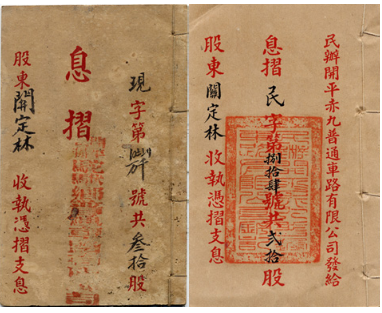 現字第號共叁拾股
息摺
股東關定林 收執憑摺支息
民辦開平赤九普通車路有限公司發給
息摺民字第捌拾肆號共貳拾股
股東關定林 收執憑摺支息